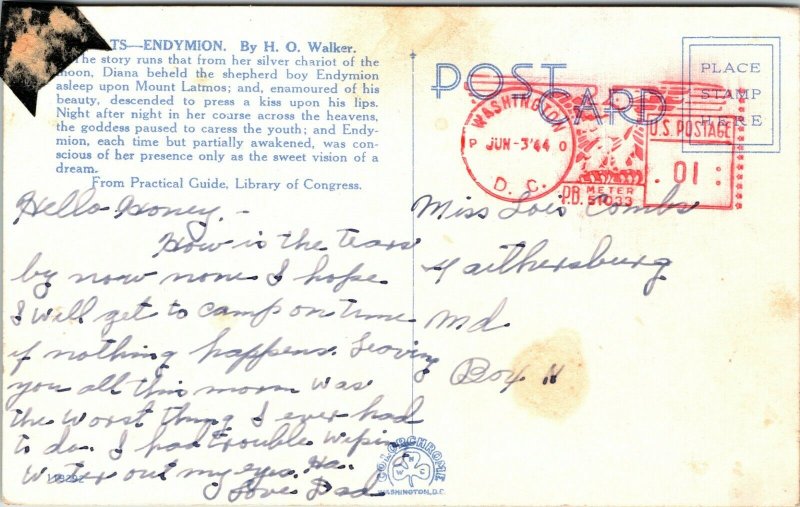 TS—ENDYMION. By H. O. Walker.
The story runs that from her silver chariot of the
moon, Diana beheld the shepherd boy Endymion
asleep upon Mount Latmos; and, enamoured of his
beauty, descended to press a kiss upon his lips.
Night after night in her course across the heavens,
the goddess paused to caress the youth; and Endy-
mion, each time but partially awakened, was con-
scious of her presence only as the sweet vision of a
dream.
From Practical Guide, Library of Congress.
Hello Honey,-
How is the tears
by now none I hope.
I will get to camp on time
if nothing happens. Leaving
you all this morn was
the worst thing I ever had
to do. I had trouble wipin
water out my eyes. Ha.
Love. Dad
POST CARD
PLACE
STAMP
HERE
WASHINGTON
P JUN-3'44 O
D. C.
U.S. POSTAGE
.01
P.B. METER
51033
Miss Lois Combs
Gaithersburg
Md
Box 11
COLORCHROME
WASHINGTON, D.C.